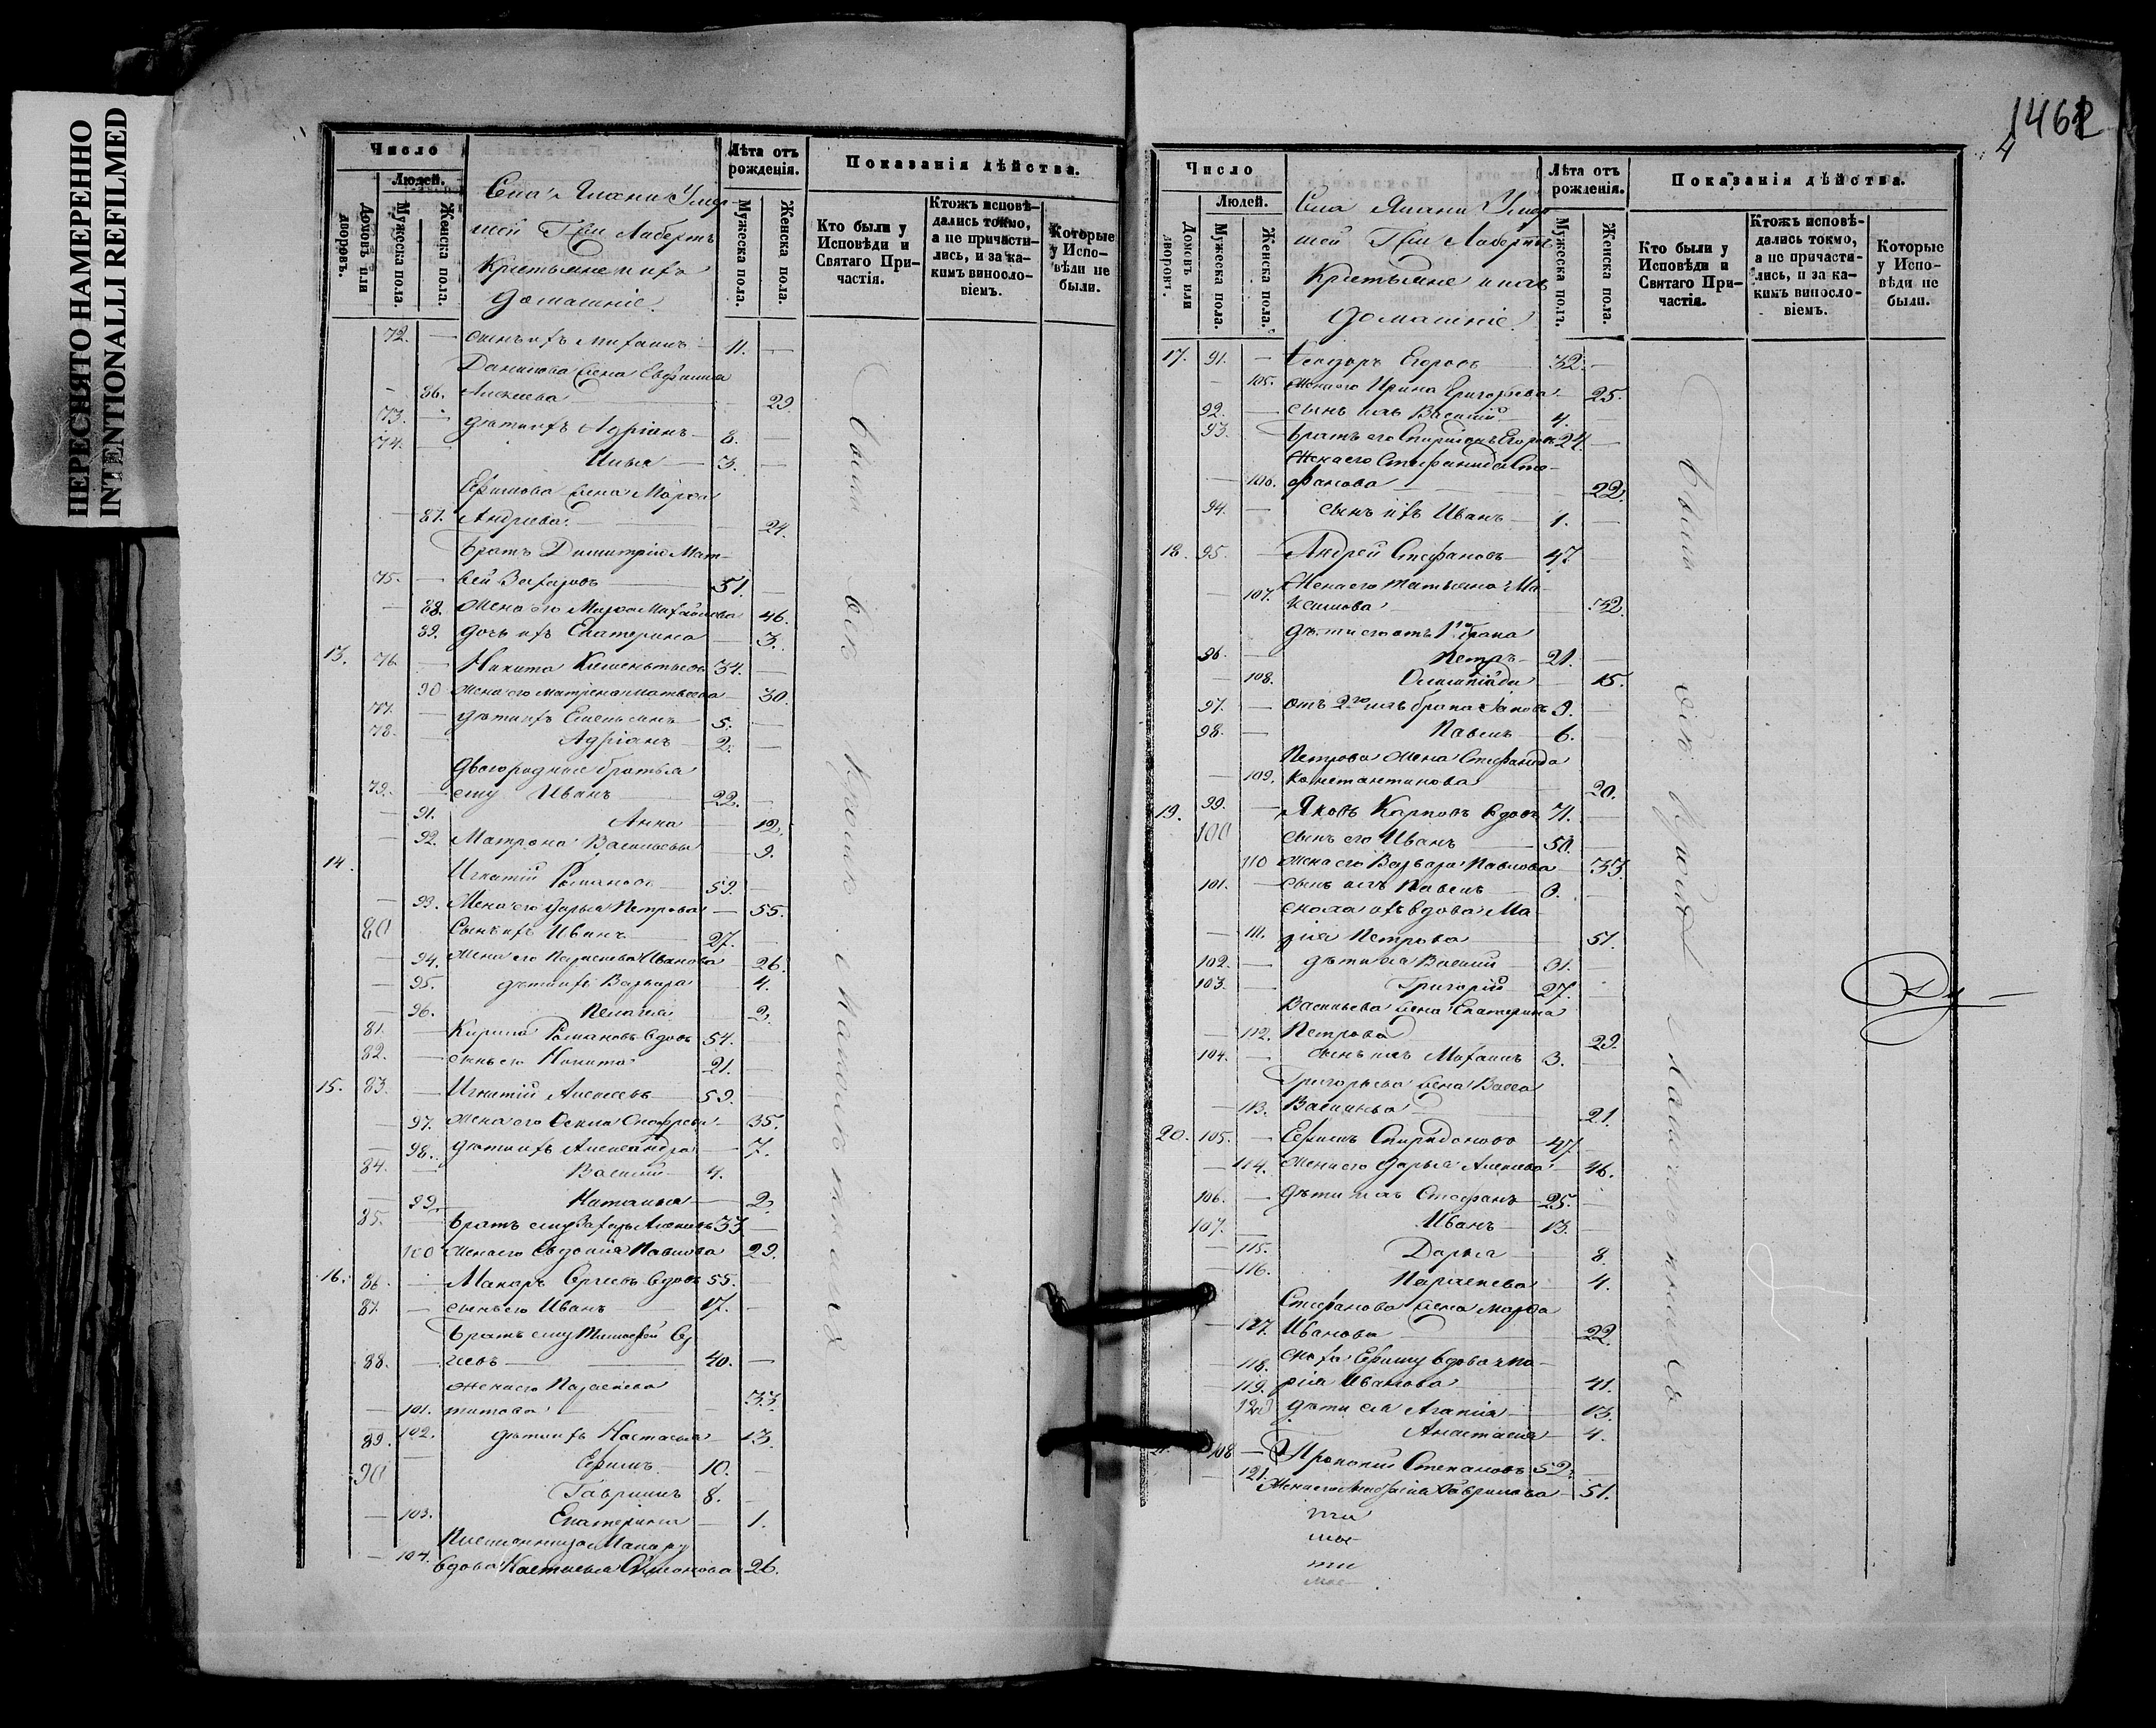 ПЕРЕСНЯТО НАМЕРЕННО
INTENTIONALLI REFILMED
Число
Людей.
Домовъ или дворовъ.
Мужеска пола.
Женска пола.
Села Ямани Умер
шей Гжи Ладертъ
Крестьяне и ихъ
домашніе.
Лѣта отъ рожденія.
Мужеска пола.
Женска пола.
Показанія дѣйства.
Кто были у Исповѣди и Святаго Причастія.
Ктожъ исповѣ-
дались токмо,
а не причасти-
лись, и за ка-
кимъ винословіемъ.
Которые у Испо-
вѣди не были.
72. — сынъ ихъ Михаилъ 11. —
Данилова жена Евфимия
— 86. Алексѣева 29.
73. — дѣти ихъ Адріанъ 8. —
74. — Илья 3. —
Ефимова жена Марѳа
— 87. Андреева 24.
братъ Димитрія Мат-
75. — вей Захаровъ 51. —
— 88. жена его Марѳа Михайлова 46.
89. дочь ихъ Екатерина 3.
13. 76. — Никита Климентьевъ 34. —
90 жена его Матрена Матвеева 30.
77. — дѣти ихъ Емельянъ 5. —
78. — Адріанъ 2. —
двоюродные братья
79. — ему Иванъ 22. —
— 91. Анна 12.
— 92. Матрона Васильевы 9.
14. Игнатій Романовъ 59. —
— 93. Жена его Дарья Петрова — 55.
80 Сынъ ихъ Иванъ 27. —
— 94. жена его Параскева Иванова 26.
— 95. дѣти ихъ Варвара 4.
— 96. Пелагея 2.
81. — Кирила Романовъ вдовъ 54. —
82. — сынъ его Никита 21. —
15. 83. — Игнатій Алексеевъ 59. —
— 97. жена его 35.
— 98. дѣти ихъ Александра 7.
84. — Василий 4.
— 99. Наталья 2.
85. братъ ему Захаръ Алексеевъ 33 —
100 жена его Евдокия Павлова 29.
16. 86. — Макаръ Сергеевъ вдовъ 55. —
87. — сынъ его Иванъ 17. —
братъ ему Тимофей Сер
88. — геевъ 40. —
жена его Параскева
— 101. Титова 33.
— 102. дѣти ихъ Настасья 13.
89. — Ефимъ 10. —
90 Гавриилъ 8. —
— 103. Екатерина 1.
Племянница Макару
— 104. вдова Настасья Симонова 26.
были всѣ кромѣ малолѣтныхъ
1462
4
Число
Людей.
Домовъ или дворовъ.
Мужеска пола.
Женска пола.
Села Ямани Умер
шей Гжи Ладертъ
Крестьяне и ихъ
домашніе.
Лѣта отъ рожденія.
Мужеска пола.
Женска пола.
Показанія дѣйства.
Кто были у Исповѣди и Святаго При-
частія.
Ктожъ исповѣ-
дались токмо,
а не причасти-
лись, и за ка-
кимъ винословіемъ.
Которые у Испо-
вѣди не были.
17. 91. — Ѳеодоръ Егоровъ 32. —
— 105. Жена его Ирина Григорьева 25.
92. — сынъ ихъ Василий 4. —
93. братъ его Спиридонъ Егоровъ 24. —
Жена его Стефанида Сте-
— 106. фанова 22.
94. — сынъ ихъ Иванъ 1. —
18. 95. — Андрей Стефановъ 47. —
Жена его Татьяна Ма-
— 107. ксимова 32.
дѣти его отъ 1го брака
96. — Петръ 21. —
— 108. Олимпіада 15.
97. — отъ 2го ихъ брака Іаковъ 9. —
98. — Павелъ 6. —
Петрова жена Стефанида
— 109. Константинова 20.
19. 99. — Яковъ Карповъ вдовъ 71. —
100 сынъ его Иванъ 50. —
110 Жена его Варвара Павлова 33.
101. — сынъ ихъ Павелъ 3. —
сноха ихъ вдова Ма-
— 111. рия Петрова 51.
102. — дѣти ея Василий 31. —
103. — Григорій 27. —
Васильева жена Екатерина
— 112. Петрова 29.
104. — сынъ ихъ Михаилъ 3. —
Григорьева жена Васса
— 113. Васильева 21.
20. 105. — Ефимъ Спиридоновъ 47. —
— 114. Жена его Дарья Алексеева 46.
106. — дѣти ихъ Стефанъ 25. —
107. — Иванъ 13. —
— 115. Дарья 8.
— 116. Параскева 4.
Стефанова жена Марѳа
— 117. Иванова 22.
118. сноха Ефиму вдова Ма-
119. рія Иванова 41.
120 дѣти ея Агапия 13.
Анастасия 4.
21. 108 — Прокопий Степановъ 52.
— 121. Жена его Гаврилова 51.
были всѣ кромѣ малолѣтныхъ